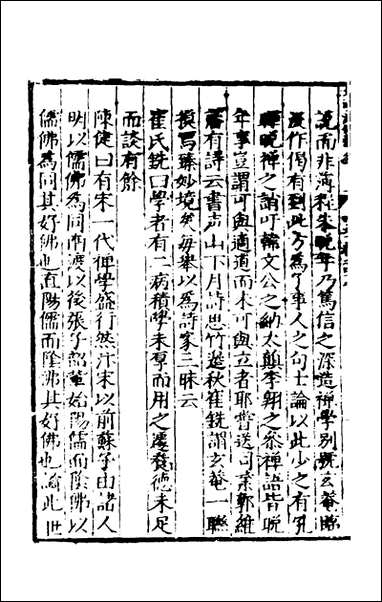 說而非薄程朱晚年乃篤信之深造禪學別號玄菴臨
沒作偈有到此方為了事人之句士論以此少之有宛
晚禪之誚吁韓文公之納太顛李翱之參禪語皆晚
年事豈謂可與適道而未可與立者耶嘗送司業郭維
有詩云書声山下月詩思竹邊秋崔銑謂玄菴一聯
摸寫臻妙境矣每舉以為詩家三昧云
崔氏銑曰學者有二病積學未厚而用之遽養德未足
而談有餘
陳健曰有宋一代禪學盛行然汴宋以前蘇子由諸人
明以儒佛為同南渡以後張子韶輩始陽儒而陰佛以
儒佛為同其好佛也直陽儒而陰佛其好佛也諭此世